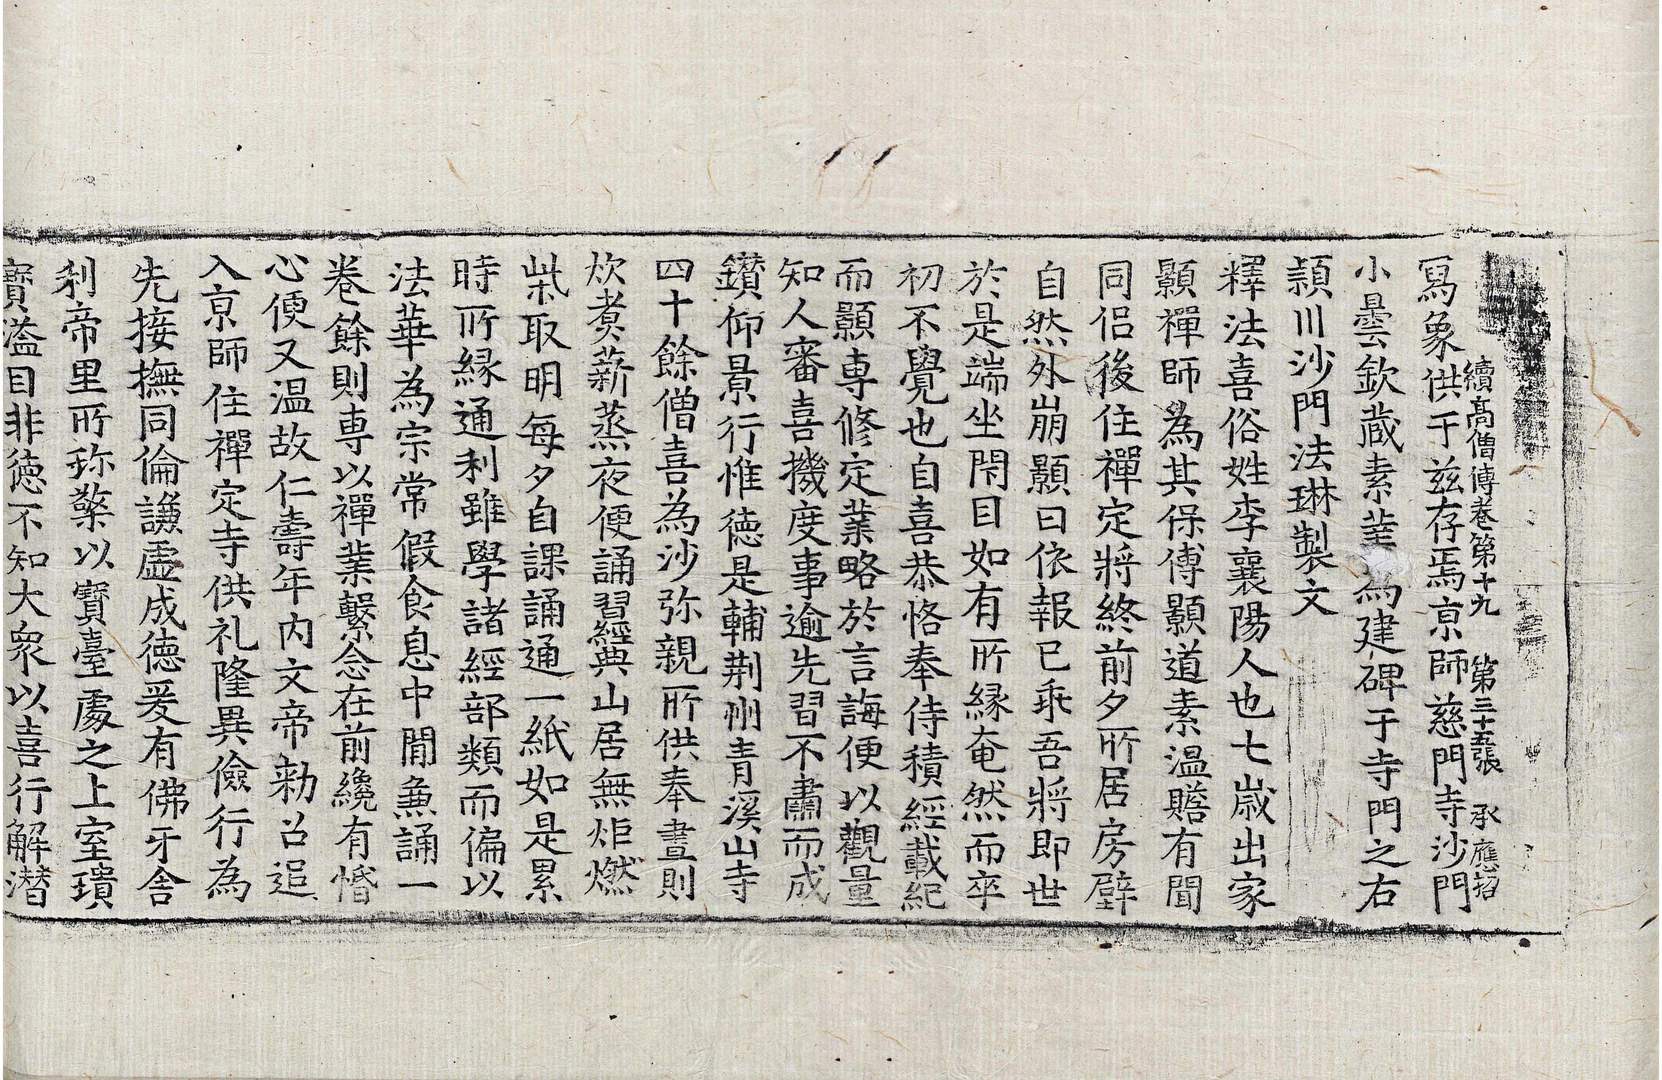 續高僧傳卷第十九 第三十五張 承應招
寫象供于兹存焉京師慈門寺沙門
小曇欽蔵素業為建碑于寺門之右
頴川沙門法琳製文
釋法喜俗姓李襄陽人也七歲出家
顥禪師為其保傅顥道素温贍有聞
同侣後住禪定將終前夕所居房壁
自然外崩顥曰依報已乖吾將即世
於是端坐閇目如有所緣奄然而卒
初不覺也自喜恭恪奉侍積經載紀
而顥専修定業略於言誨便以觀量
知人審喜機度事逾先習不肅而成
鑚仰景行惟德是輔荆州青溪山寺
四十餘僧喜為沙弥親所供奉晝則
炊煑薪蒸夜便誦習經典山居無炬燃
柴取明每夕自課誦通一紙如是累
時所縁通利雖學諸經部類而偏以
法華為宗常假食息中間兼誦一
卷餘則専以禪業繫念在前纔有惛
心便又温故仁壽年内文帝勑召追
入京師住禪定寺供礼隆異儉行為
先接撫同倫謙虚成德爰有佛牙舍
利帝里所珎擎以寶臺處之上室璝
寶溢目非德不知大衆以喜行解潜